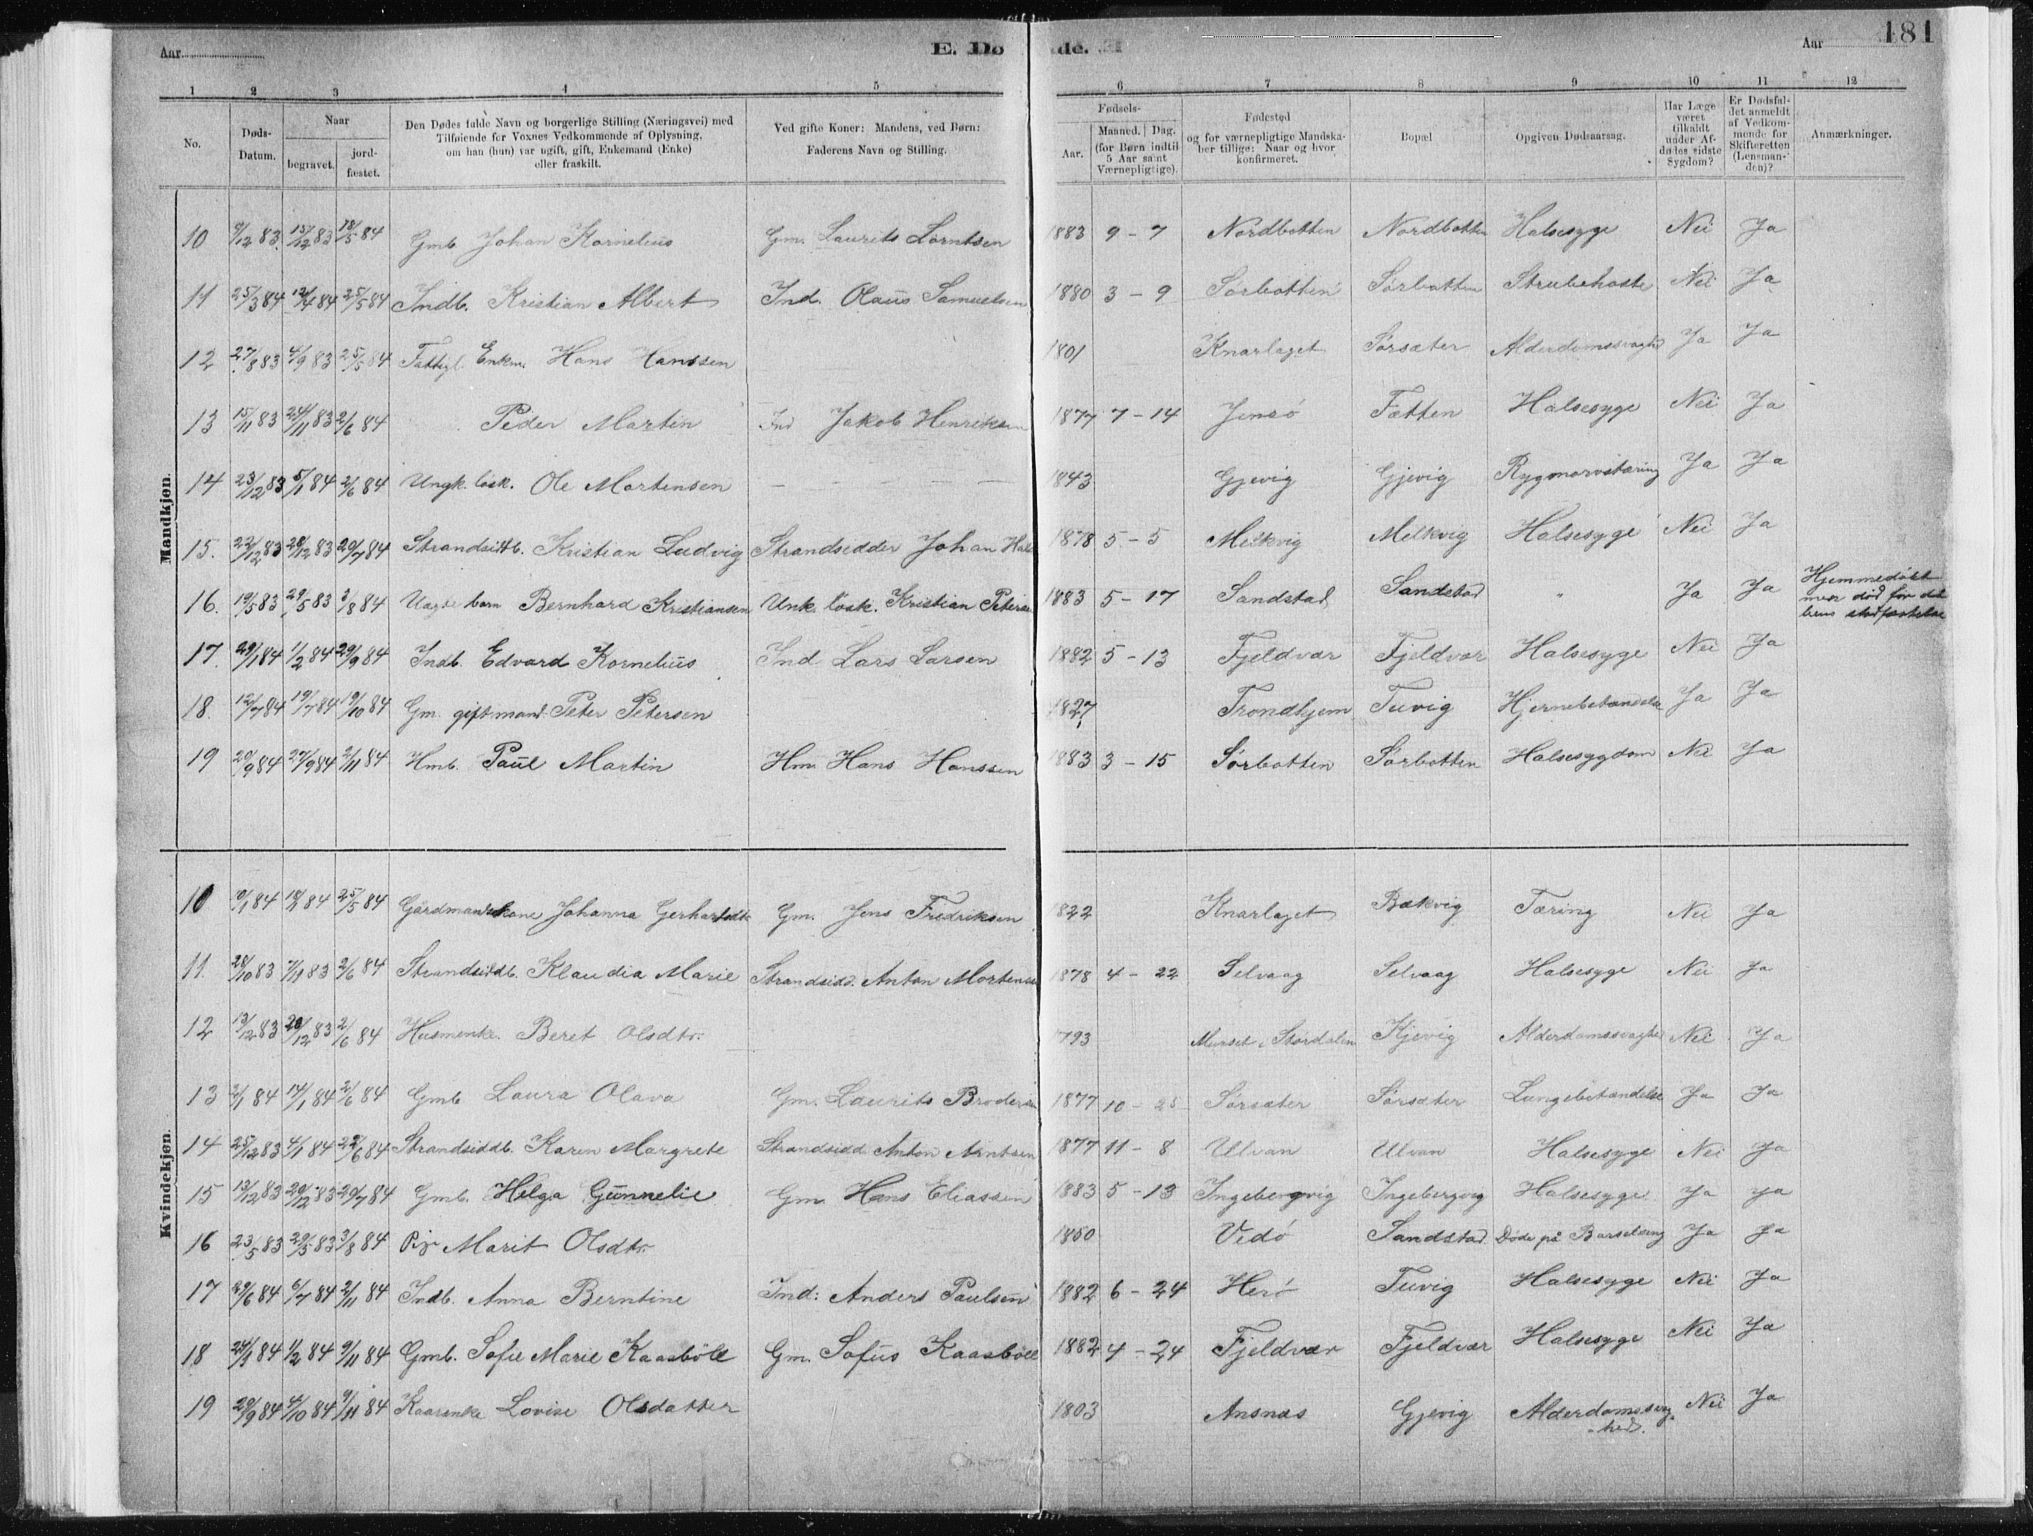 Aar
E. Dø
de. M
Aar
181
1 2 3 4 5 6 7 8 9 10 11 12
No.
Døds-Datum.
Naar
begravet.
jord-fæstet.
Den Dødes fulde Navn og borgerlige Stilling (Næringsvei) med
Tilføiende for Voxnes Vedkommende af Oplysning,
om han (hun) var ugift, gift, Enkemand (Enke)
eller fraskilt.
Ved gifte Koner: Mandens, ved Børn:
Faderens Navn og Stilling.
Fødsels-
Aar.
Maaned. Dag.
(for Børn indtil
5 Aar samt
Værnepligtige).
Fødested
og for værnepligtige Mandska-
ber tillige: Naar og hvor
konfirmeret.
Bopæl
Opgiven Dødsaarsag.
Har Læge
været
tilkaldt
under Af-
dødes sidste
Sygdom?
Er Dødsfal-
det anmeldt
af Vedkom-
mende for
Skifteretten
(Lensman-
den)?
Anmærkninger.
Mandkjøn.
10 9/12 83. 15/12 83 18/5 84 Gmb Johan Kornelius Gm. Laurits Lorntsen 1883 9 - 7 Nordbotten Nordbotten Halsesyge Nei Ja
11 25/3 84 12/4 84 25/5 84 Indb. Kristian Albert Ind. Olaus Samuelsen 1880 3 - 9 Sørbotten Sørbotten Strubehoste Nei Ja
12 27/8 83 4/9 83 25/5 84 Fattigl. Enkm. Hans Hanssen 1801 Knarlaget Sørsæter Alderdomssvaghd Ja Ja
13 15/11 83 24/11 83 2/6 84 Peder Martin Ind Jakob Henriksen 1877 7 - 14 Jensø Fætten Halsesyge Nei Ja
14 23/12 83 5/1 84 2/6 84 Ungk. løsk. Ole Mortensen — — — 1843 Gjevig Gjevig Rygmarvstæring Ja Ja
15. 22/12 83 28/12 83 20/7 84 Strandsittb. Kristian Ludvig Strandsidder Johan 1878 5 - 5 Melkvig Melkvig Halsesyge Nei Ja
16. 19/5 83 29/5 83 3/8 84 Uægte barn Bernhard Kristiansen Unk. løsk. Kristian Petersen 1883 5 - 17 Sandstad Sandstad " Ja Ja Hjemmedøbt
men død før
17. 29/1 84 1/2 84 29/9 84 Indb. Edvard Kornelius Ind Lars Larsen 1882 5 - 13 Fjeldvær Fjeldvær Halsesyge Nei Ja
18. 12/7 84 19/7 84 19/10 84 Gm. giftmand Peter Petersen 1827 Trondhjem Tuvig Hjernebetændelse Ja Ja
19 20/9 84 27/9 84 2/11 84 Hmb. Paul Martin Hm. Hans Hanssen 1883 3 - 15 Sørbotten Sørbotten Halsesygdom Nei Ja
Kvindekjøn.
10 9/1 84 18/1 84 25/5 84 Gårdmandskone Johanna Gm. Jens Fredriksen 1822 Knarlaget Bækvig Tæring Nei Ja
11. 28/10 83 7/11 83 2/6 84 Strandsiddb. Klaudia Marie Strandsidd. Anton Mortensen 1878 4 - 22 Selvaag Selvaag Halsesyge Nei Ja
12 13/12 83 20/12 83 2/6 84 Husmenke. Beret Olsdtr. 1793 Størdalen Kjevig Alderdomssvaghed Nei Ja
13 2/1 84 14/1 84 2/6 84 Gmb Laura Olava Gm. Laurits Brodersen 1877 10 - 25 Sørsæter Sørsæter Lungebetændelse Ja Ja
14 25/12 83 4/1 84 22/6 84 Strandsiddb. Karen Margrete Strandsidd Anton Arntsen 1877 11 - 8 Ulvan Ulvan Halsesyge Nei Ja
15 13/12 83 20/12 83 20/7 84 Gmb. Helga Gunnelie Gm. Hans Eliassen 1883 5 - 13 Ingebergvig Ingebergvig Halsesyge Ja Ja
16 23/5 83 29/5 83 3/8 84 Pige Marit Olsdtr. 1850 Vedø Sandstad Døde på Barselseng Ja Ja
17 29/6 84 6/7 84 2/11 84 Indb. Anna Berntine Ind: Anders Paulsen 1882 6 - 24 Herø Tuvig Halsesyge Nei Ja
18 24/1 84 1/2 84 9/11 84 Gmb. Sofie Marie Kaasbøll Gm. Sofus Kaasbøll 1882 4 - 24 Fjeldvær Fjeldvær Halsesyge Nei Ja
19 28/9 84 4/10 84 9/11 84 Kaarenke Lovise Olsdatter 1803 Ansnæs Gjevig Alderdomssvag-
hed. Nei Ja